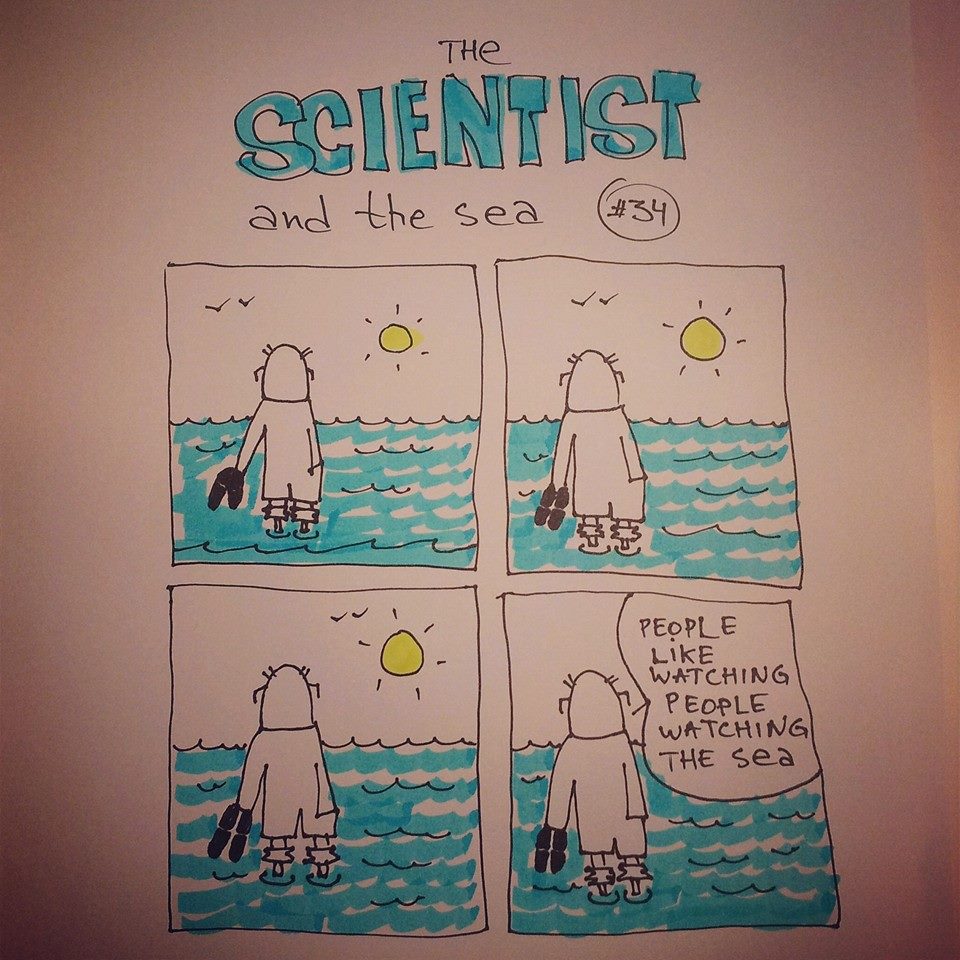 THe
SCIENTIST
and the sea #34
PEOPLE
LiKE
WATCHING
PEOPLE
WATCHING
THE Sea